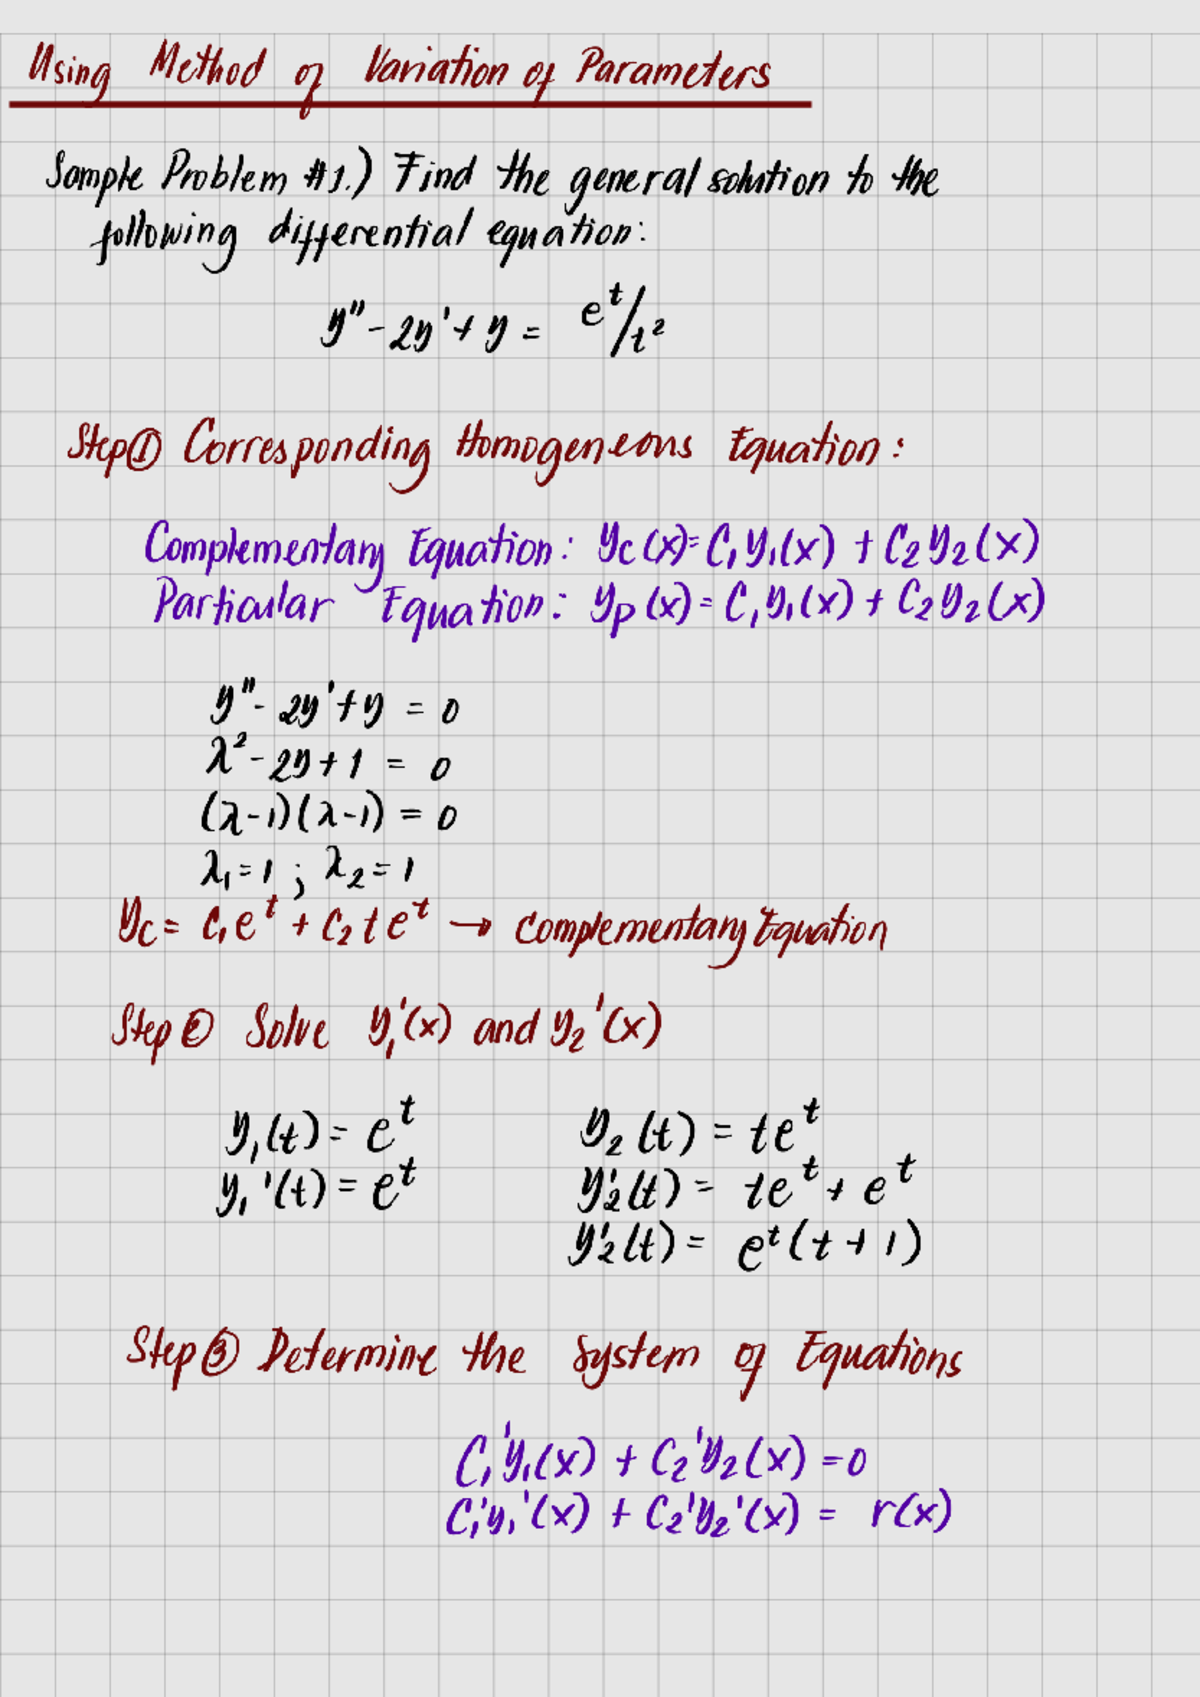 Using Method of Variation of Parameters
Sample Problem #1.) Find the general solution to the
following differential equation:
y" - 2y' + y = e^t/t²
Step① Corresponding Homogeneous Equation:
Complementary Equation: yc(x) = C₁y₁(x) + C₂y₂(x)
Particular Equation: yp(x) = C₁y₁(x) + C₂y₂(x)
y" - 2y' + y = 0
λ² - 2y + 1 = 0
(λ-1)(λ-1) = 0
λ₁ = 1 ; λ₂ = 1
yc = C₁e^t + C₂te^t → Complementary Equation
Step② Solve y₁'(x) and y₂'(x)
y₁(t) = e^t y₂(t) = te^t
y₁'(t) = e^t y₂'(t) = te^t + e^t
y₂'(t) = e^t(t+1)
Step③ Determine the System of Equations
C₁'y₁(x) + C₂'y₂(x) = 0
C₁'y₁'(x) + C₂'y₂'(x) = r(x)